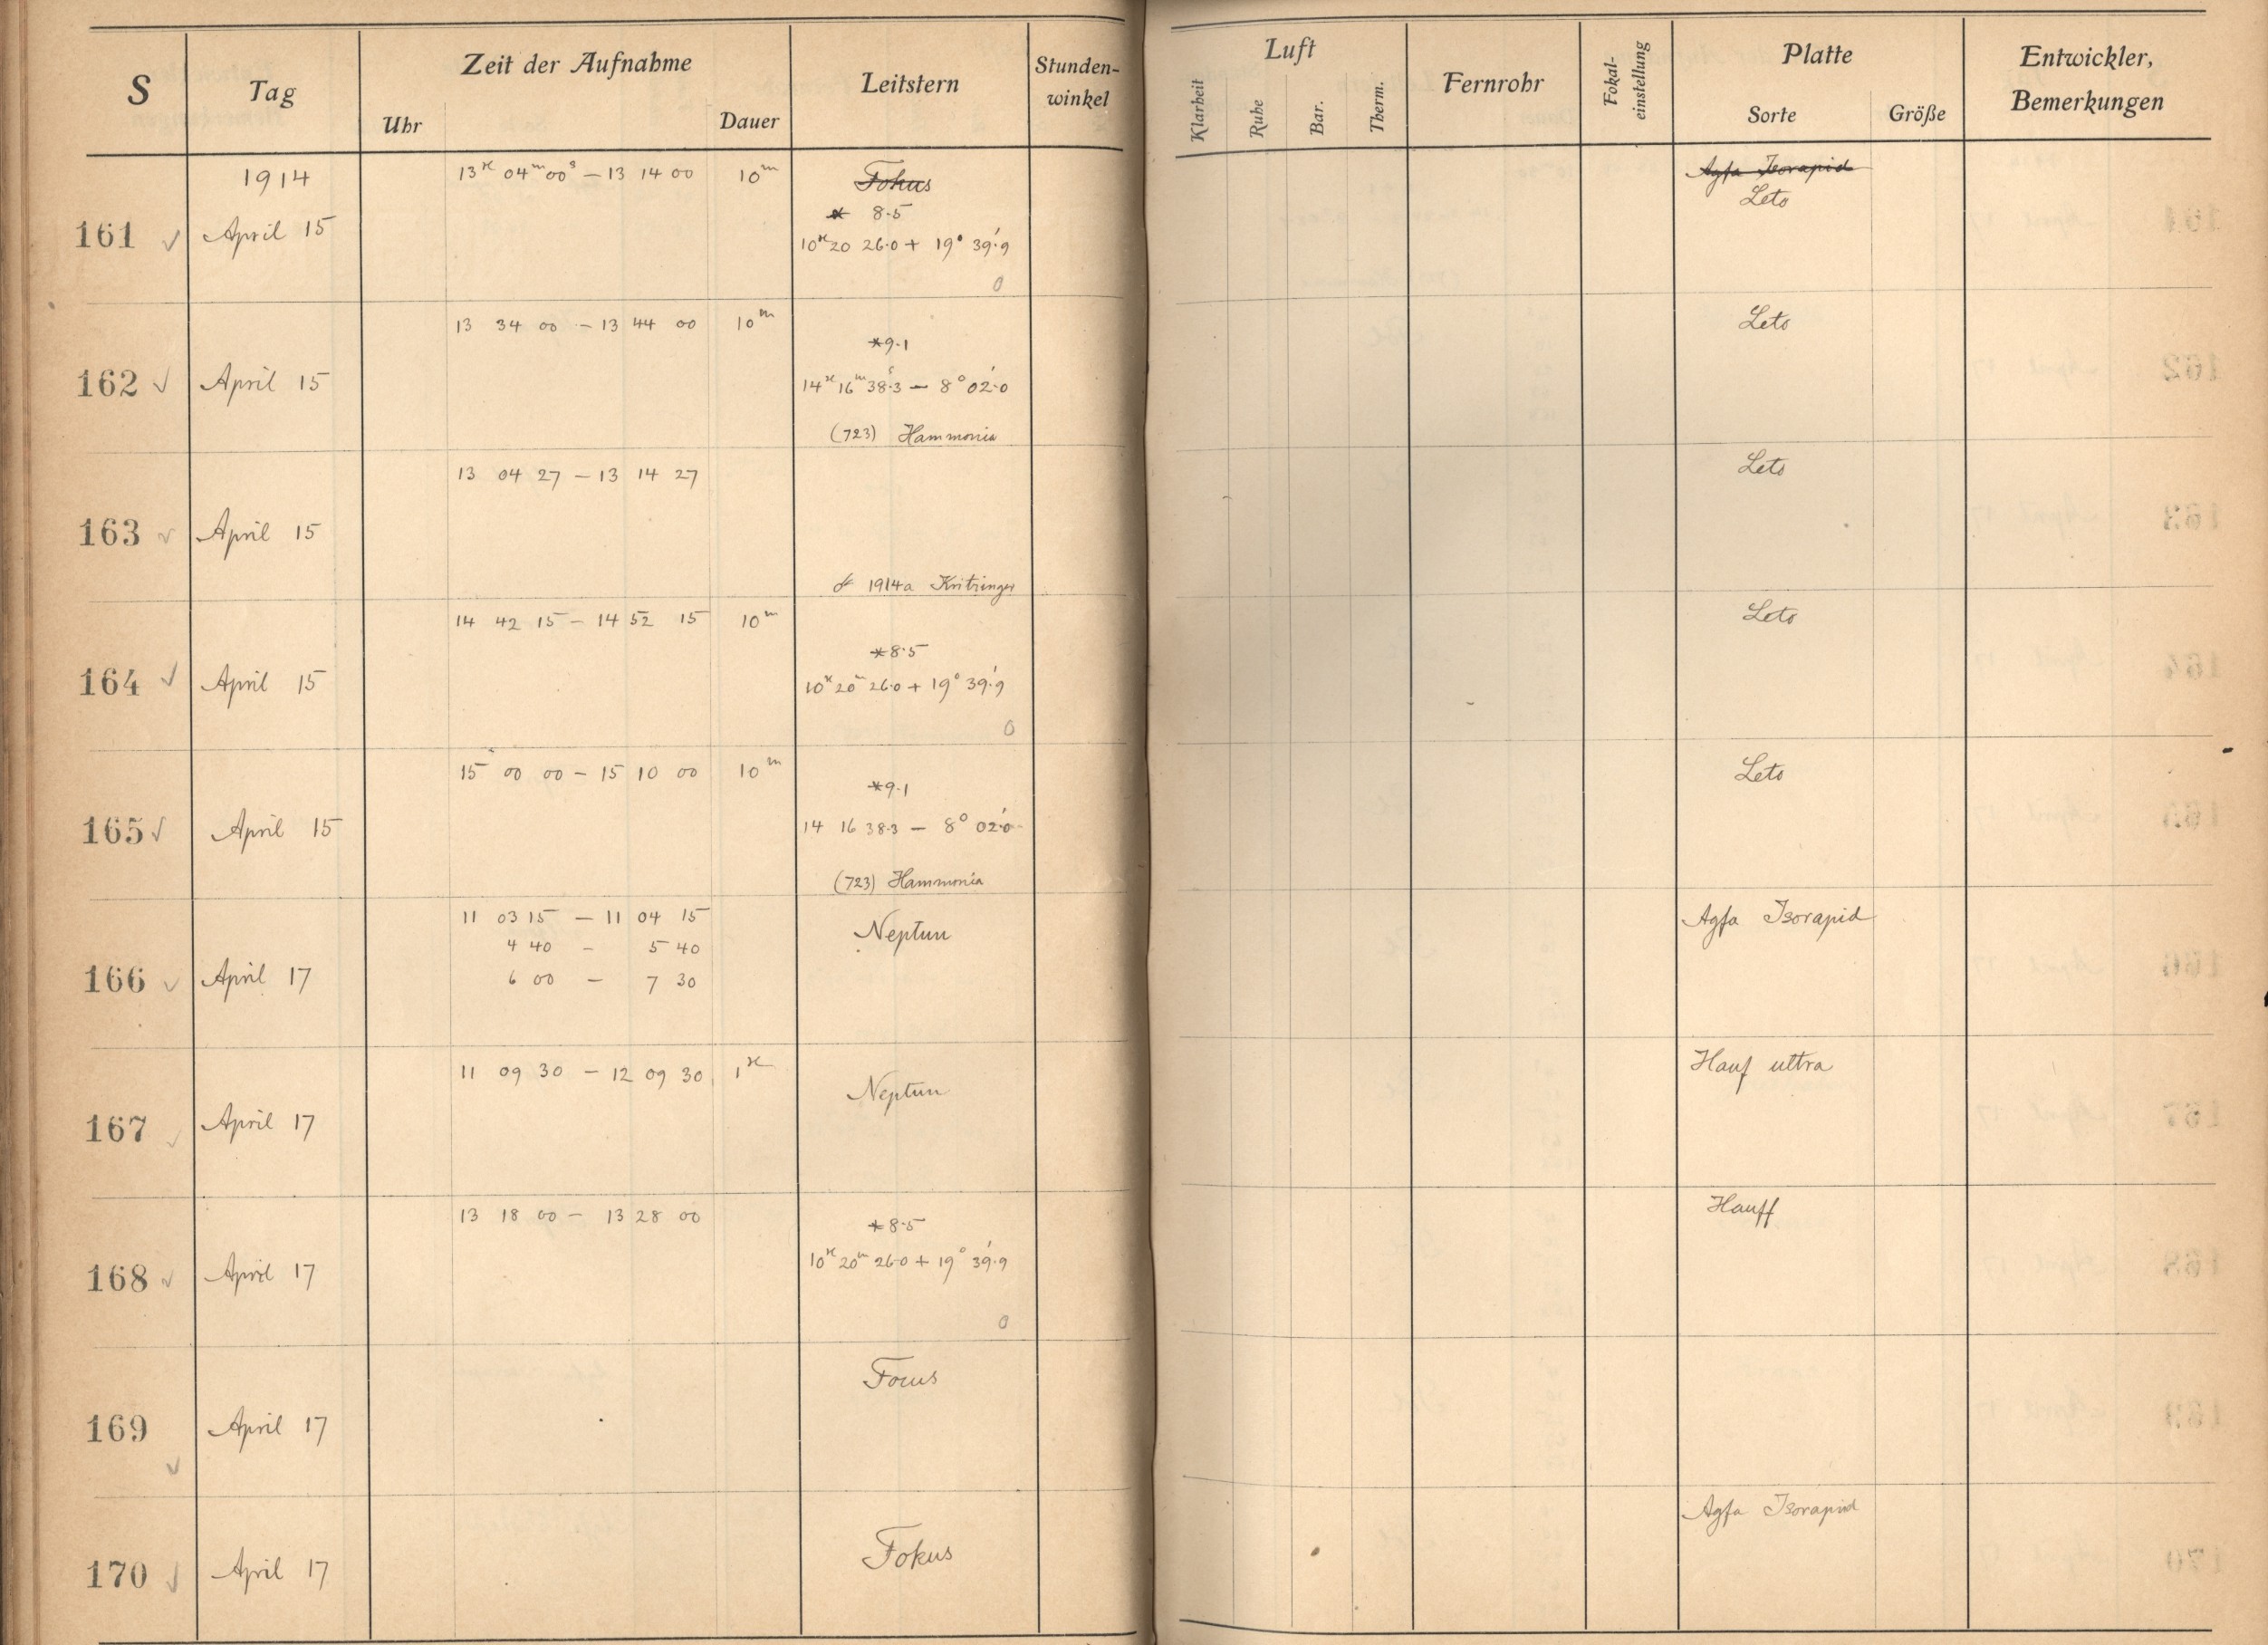 S Tag Zeit der Aufnahme Leitstern Stunden-winkel Luft Fernrohr Fokal-einstellung Platte Entwickler, Bemerkungen
Uhr Dauer Klarheit Ruhe Bar. Therm. Sorte Größe
1914 13ʰ 04ᵐ 00ˢ — 13 14 00 10ᵐ Fokus Agfa Isorapid
* 8.5 Leto
161 ✓ April 15 10ʰ 20 26.0 + 19° 39'.9
0
13 34 00 — 13 44 00 10ᵐ Leto
* 9.1
162 ✓ April 15 14ʰ 16ᵐ 38ˢ.3 — 8° 02'.0
(723) Hammonia
13 04 27 — 13 14 27 Leto
163 ✓ April 15
☄ 1914a Kritzinger
14 42 15 — 14 52 15 10ᵐ Leto
* 8.5
164 ✓ April 15 10ʰ 20ᵐ 26.0 + 19° 39'.9
0
15 00 00 — 15 10 00 10ᵐ Leto
* 9.1
165 ✓ April 15 14 16 38.3 — 8° 02'.0
(723) Hammonia
11 03 15 — 11 04 15 Neptun Agfa Isorapid
4 40 — 5 40
166 ✓ April 17 6 00 — 7 30
11 09 30 — 12 09 30 1ʰ Neptun Hauf ultra
167 ✓ April 17
13 18 00 — 13 28 00 Hauff
* 8.5
168 ✓ April 17 10ʰ 20ᵐ 26.0 + 19° 39'.9
0
Focus
169 ✓ April 17
Agfa Isorapid
170 ✓ April 17 Fokus